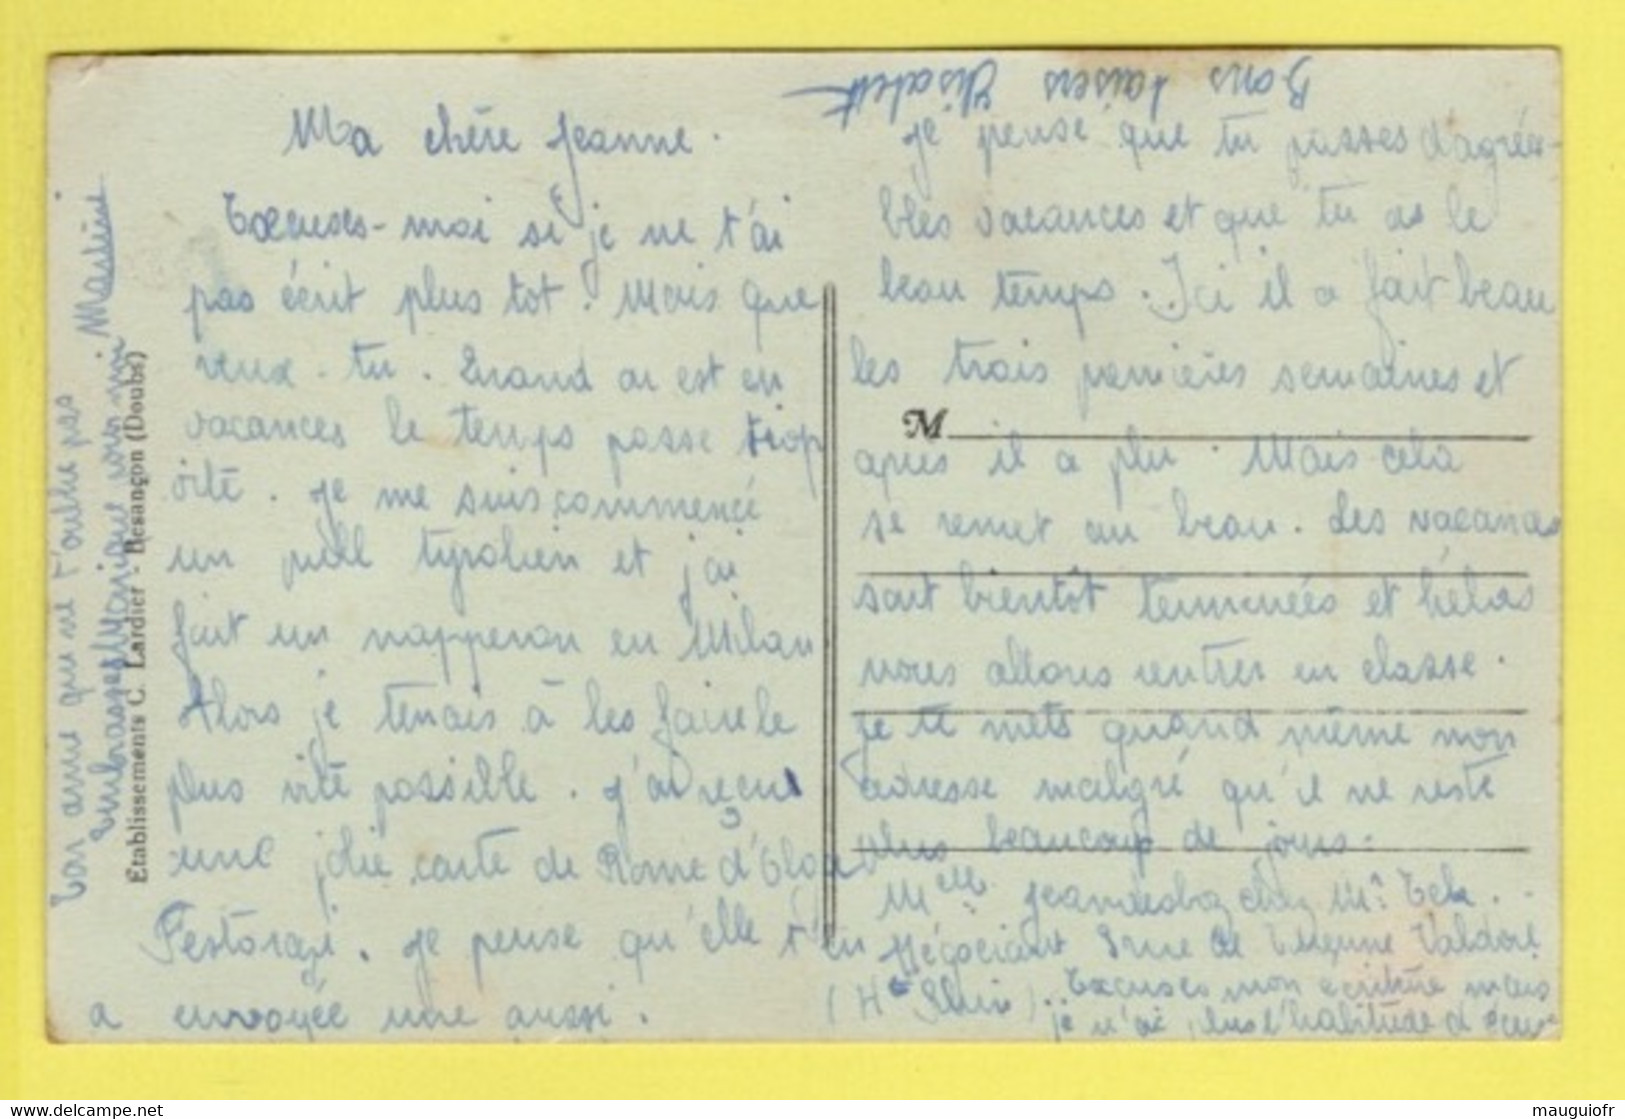 Ma chère Jeanne.
Excuses-moi si je ne t'ai
pas écrit plus tot. Mais que
veux-tu. Quand on est en
vacances le temps passe trop
vite. Je me suis commencé
un pull tyrolien et j'ai
fait un napperon en Milan
Alors je tenais à les faire le
plus vite possible. J'ai reçu
une jolie carte de Rome d'
Festorazi. Je pense qu'elle t'en
a envoyée une aussi.
Je pense que tu passes d'agréa-
bles vacances et que tu as le
beau temps. Ici il a fait beau
les trois premières semaines et
après il a plu. Mais cela
se remet au beau. Les vacances
sont bientôt terminées et hélas
nous allons rentrer en classe.
Je te mets quand même mon
adresse malgré qu'il ne reste
plus beaucoup de jours.
Melle chez Mr
Négociant rue de Valdoie
(Hte )
Excuses mon écriture mais
je n'ai plus l'habitude d'écrire
Ton amie qui ne t'oublie pas
Monique vous
Bons baisers Elisabeth
M
Etablissements C. Lardier - Besançon (Doubs)
www.delcampe.net
mauguiofr